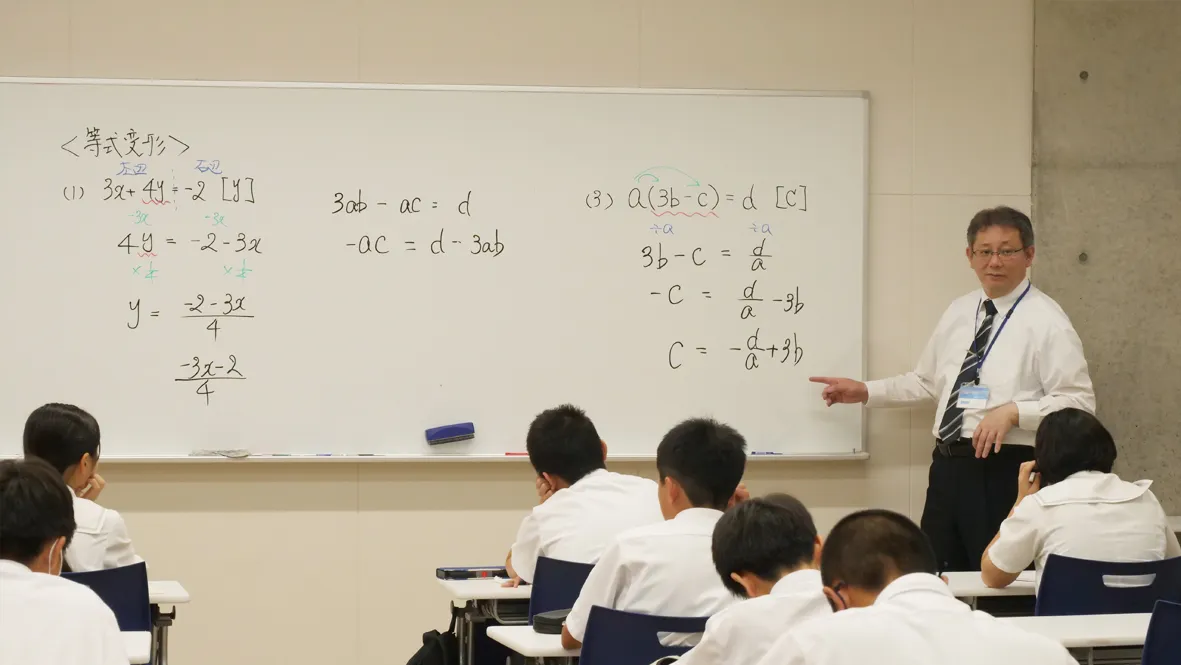 <等式変形>
左辺 右辺
(1) 3x+4y=-2 [y]
-3x -3x
4y = -2-3x
×1/4 ×1/4
y = (-2-3x)/4
(-3x-2)/4
3ab-ac = d
-ac = d-3ab
(3) a(3b-c)=d [c]
÷a ÷a
3b-c = d/a
-c = d/a -3b
c = -d/a+3b